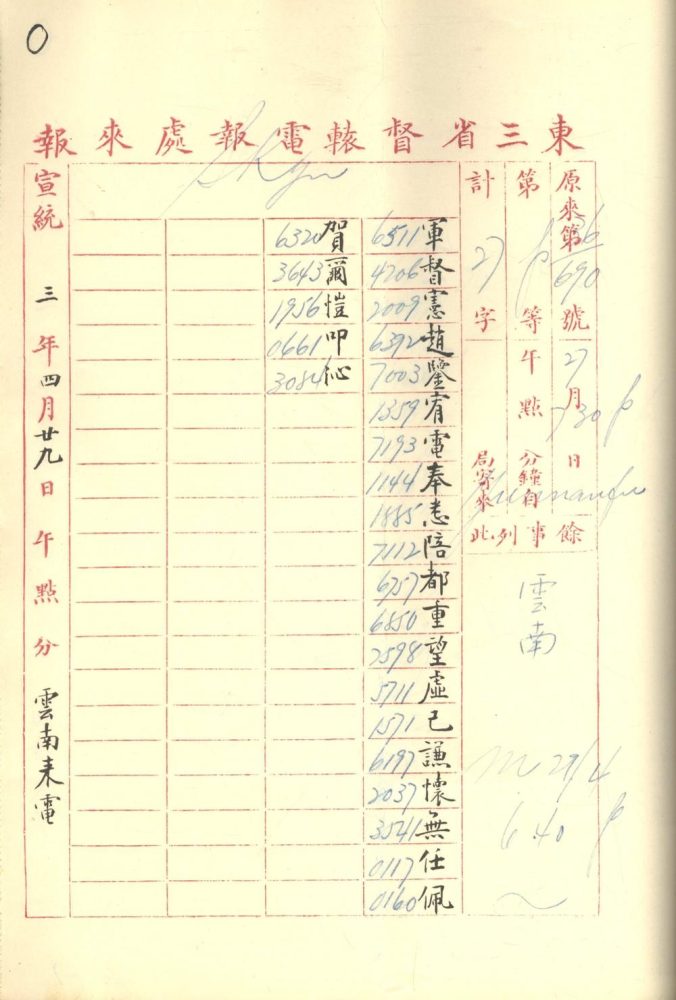 東三省督轅電報處來報
0
原來第36/690號
27月
日
7 30 p
第 p 等
午點
分鐘自
計27字
局寄來
Yunnanfu
餘事列此
雲南
29/4
6 40 p
6511 軍
4206 督
2009 憲
6392 趙
7003 鑒
1359 宥
7193 電
1144 奉
1885 悉
7112 陪
6757 都
6850 重
2598 望
5711 虛
1571 己
6197 謙
2037 懷
3541 無
0117 任
0160 佩
6320 賀
3643 爾
1956 愷
0661 叩
3084 沁
宣統三年四月廿九日午點分雲南來電